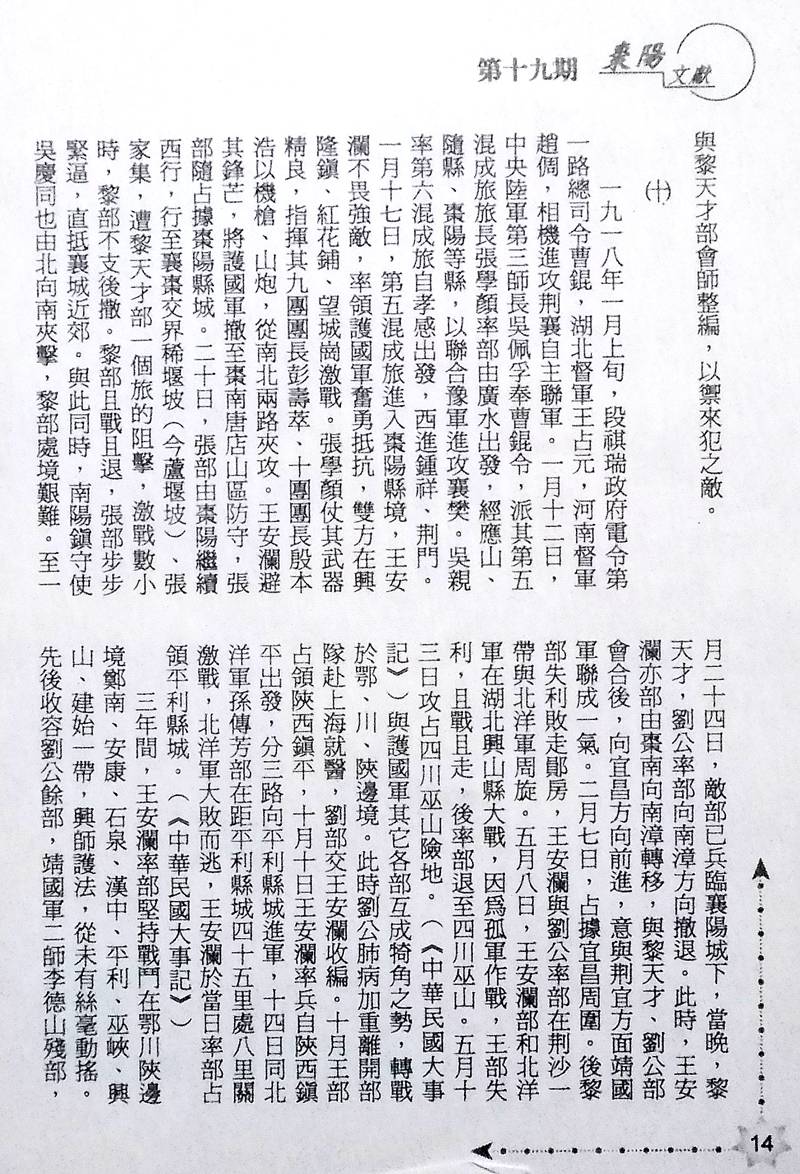 第十九期
棗陽
文獻
與黎天才部會師整編，以禦來犯之敵。
㈩
一九一八年一月上旬，段祺瑞政府電令第
一路總司令曹錕，湖北督軍王占元，河南督軍
趙倜，相機進攻荆襄自主聯軍。一月十二日，
中央陸軍第三師長吳佩孚奉曹錕令，派其第五
混成旅旅長張學顏率部由廣水出發，經應山、
隨縣、棗陽等縣，以聯合豫軍進攻襄樊。吳親
率第六混成旅自孝感出發，西進鍾祥、荆門。
一月十七日，第五混成旅進入棗陽縣境，王安
瀾不畏強敵，率領護國軍奮勇抵抗，雙方在興
隆鎮、紅花鋪、望城崗激戰。張學顏仗其武器
精良，指揮其九團團長彭壽萃、十團團長殷本
浩以機槍、山炮，從南北兩路夾攻。王安瀾避
其鋒芒，將護國軍撤至棗南唐店山區防守，張
部隨占據棗陽縣城。二十日，張部由棗陽繼續
西行，行至襄棗交界稀堰坡（今蘆堰坡）、張
家集，遭黎天才部一個旅的阻擊，激戰數小
時，黎部不支後撤。黎部且戰且退，張部步步
緊逼，直抵襄城近郊。與此同時，南陽鎮守使
吳慶同也由北向南夾擊，黎部處境艱難。至一
月二十四日，敵部已兵臨襄陽城下，當晚，黎
天才，劉公率部向南漳方向撤退。此時，王安
瀾亦部由棗南向南漳轉移，與黎天才、劉公部
會合後，向宜昌方向前進，意與荆宜方面靖國
軍聯成一氣。二月七日，占據宜昌周圍。後黎
部失利敗走鄖房，王安瀾與劉公率部在荆沙一
帶與北洋軍周旋。五月八日，王安瀾部和北洋
軍在湖北興山縣大戰，因爲孤軍作戰，王部失
利，且戰且走，後率部退至四川巫山。五月十
三日攻占四川巫山險地。（《中華民國大事
記》）與護國軍其它各部互成犄角之勢，轉戰
於鄂、川、陝邊境。此時劉公肺病加重離開部
隊赴上海就醫，劉部交王安瀾收編。十月王部
占領陝西鎮平，十月十日王安瀾率兵自陝西鎮
平出發，分三路向平利縣城進軍，十四日同北
洋軍孫傳芳部在距平利縣城四十五里處八里關
激戰，北洋軍大敗而逃，王安瀾於當日率部占
領平利縣城。（《中華民國大事記》）
三年間，王安瀾率部堅持戰鬥在鄂川陝邊
境鄭南、安康、石泉、漢中、平利、巫峽、興
山、建始一帶，興師護法，從未有絲毫動搖。
先後收容劉公餘部，靖國軍二師李德山殘部，
14